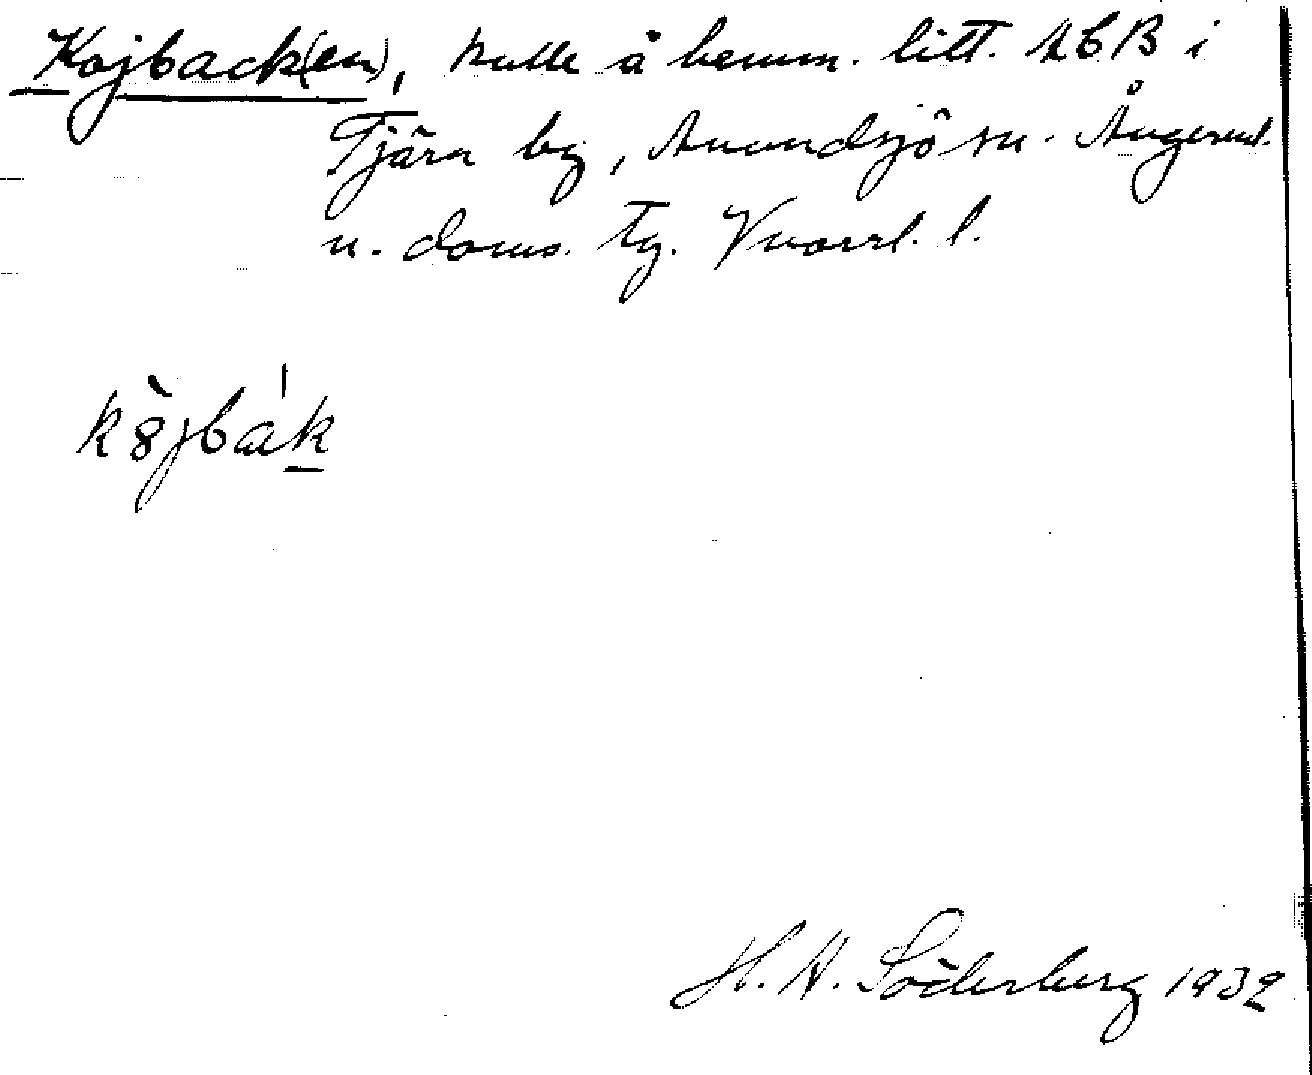 Kojback(en), kulle å hemm. litt. AbB i
Tjärn by, Anundsjö sn. Ångerml.
n. doms. tg. Vnorrl. l.
kojbak
H. A. Söderberg 1932